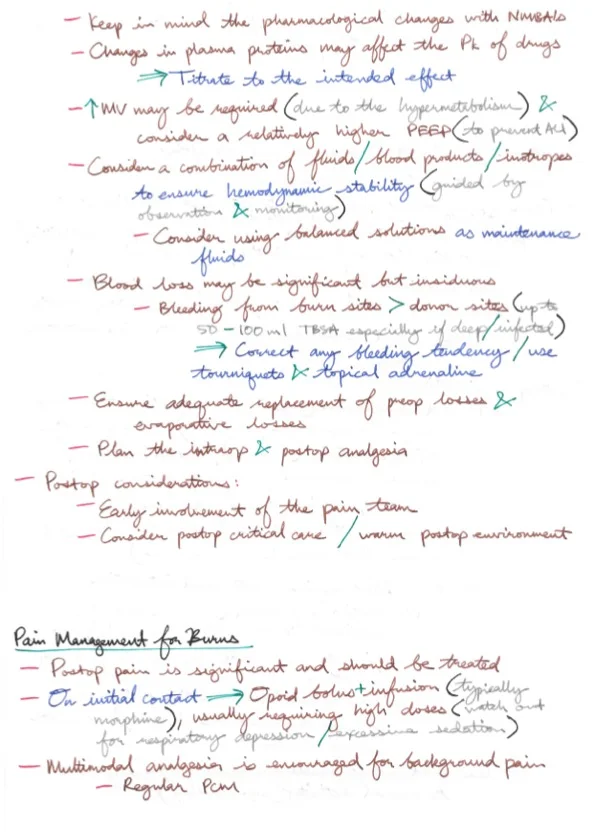 – Keep in mind the pharmacological changes with NMBAs
– Changes in plasma proteins may affect the PK of drugs
⇒ Titrate to the intended effect
– ↑ MV may be required (due to the hypermetabolism) &
consider a relatively higher PEEP (to prevent ALI)
– Consider a combination of fluids / blood products / inotropes
to ensure hemodynamic stability (guided by
observation & monitoring)
– Consider using balanced solutions as maintenance
fluids
– Blood loss may be significant but insiduous
– Bleeding from burn sites > donor sites (up to
50 – 100 ml TBSA especially if deep / infected)
⇒ Correct any bleeding tendency / use
tourniquets & topical adrenaline
– Ensure adequate replacement of preop losses &
evaporative losses
– Plan the intraop & postop analgesia
– Postop considerations:
– Early involvement of the pain team
– Consider postop critical care / warm postop environment
Pain Management for Burns
– Postop pain is significant and should be treated
– On initial contact ⇒ Opoid bolus + infusion (typically
morphine), usually requiring high doses (watch out
for respiratory depression / excessive sedation)
– Multimodal analgesia is encouraged for background pain
– Regular PCM